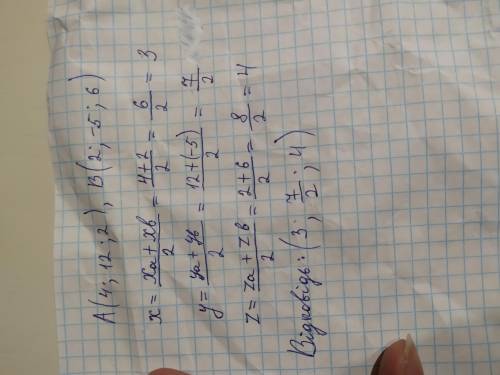 A(4; 12; 2), B(2; -5; 6)
x = (xa + xb)/2 = (4+2)/2 = 6/2 = 3
y = (ya + yb)/2 = (12+(-5))/2 = 7/2
z = (za + zb)/2 = (2+6)/2 = 8/2 = 4
Відповідь: (3; 7/2; 4)